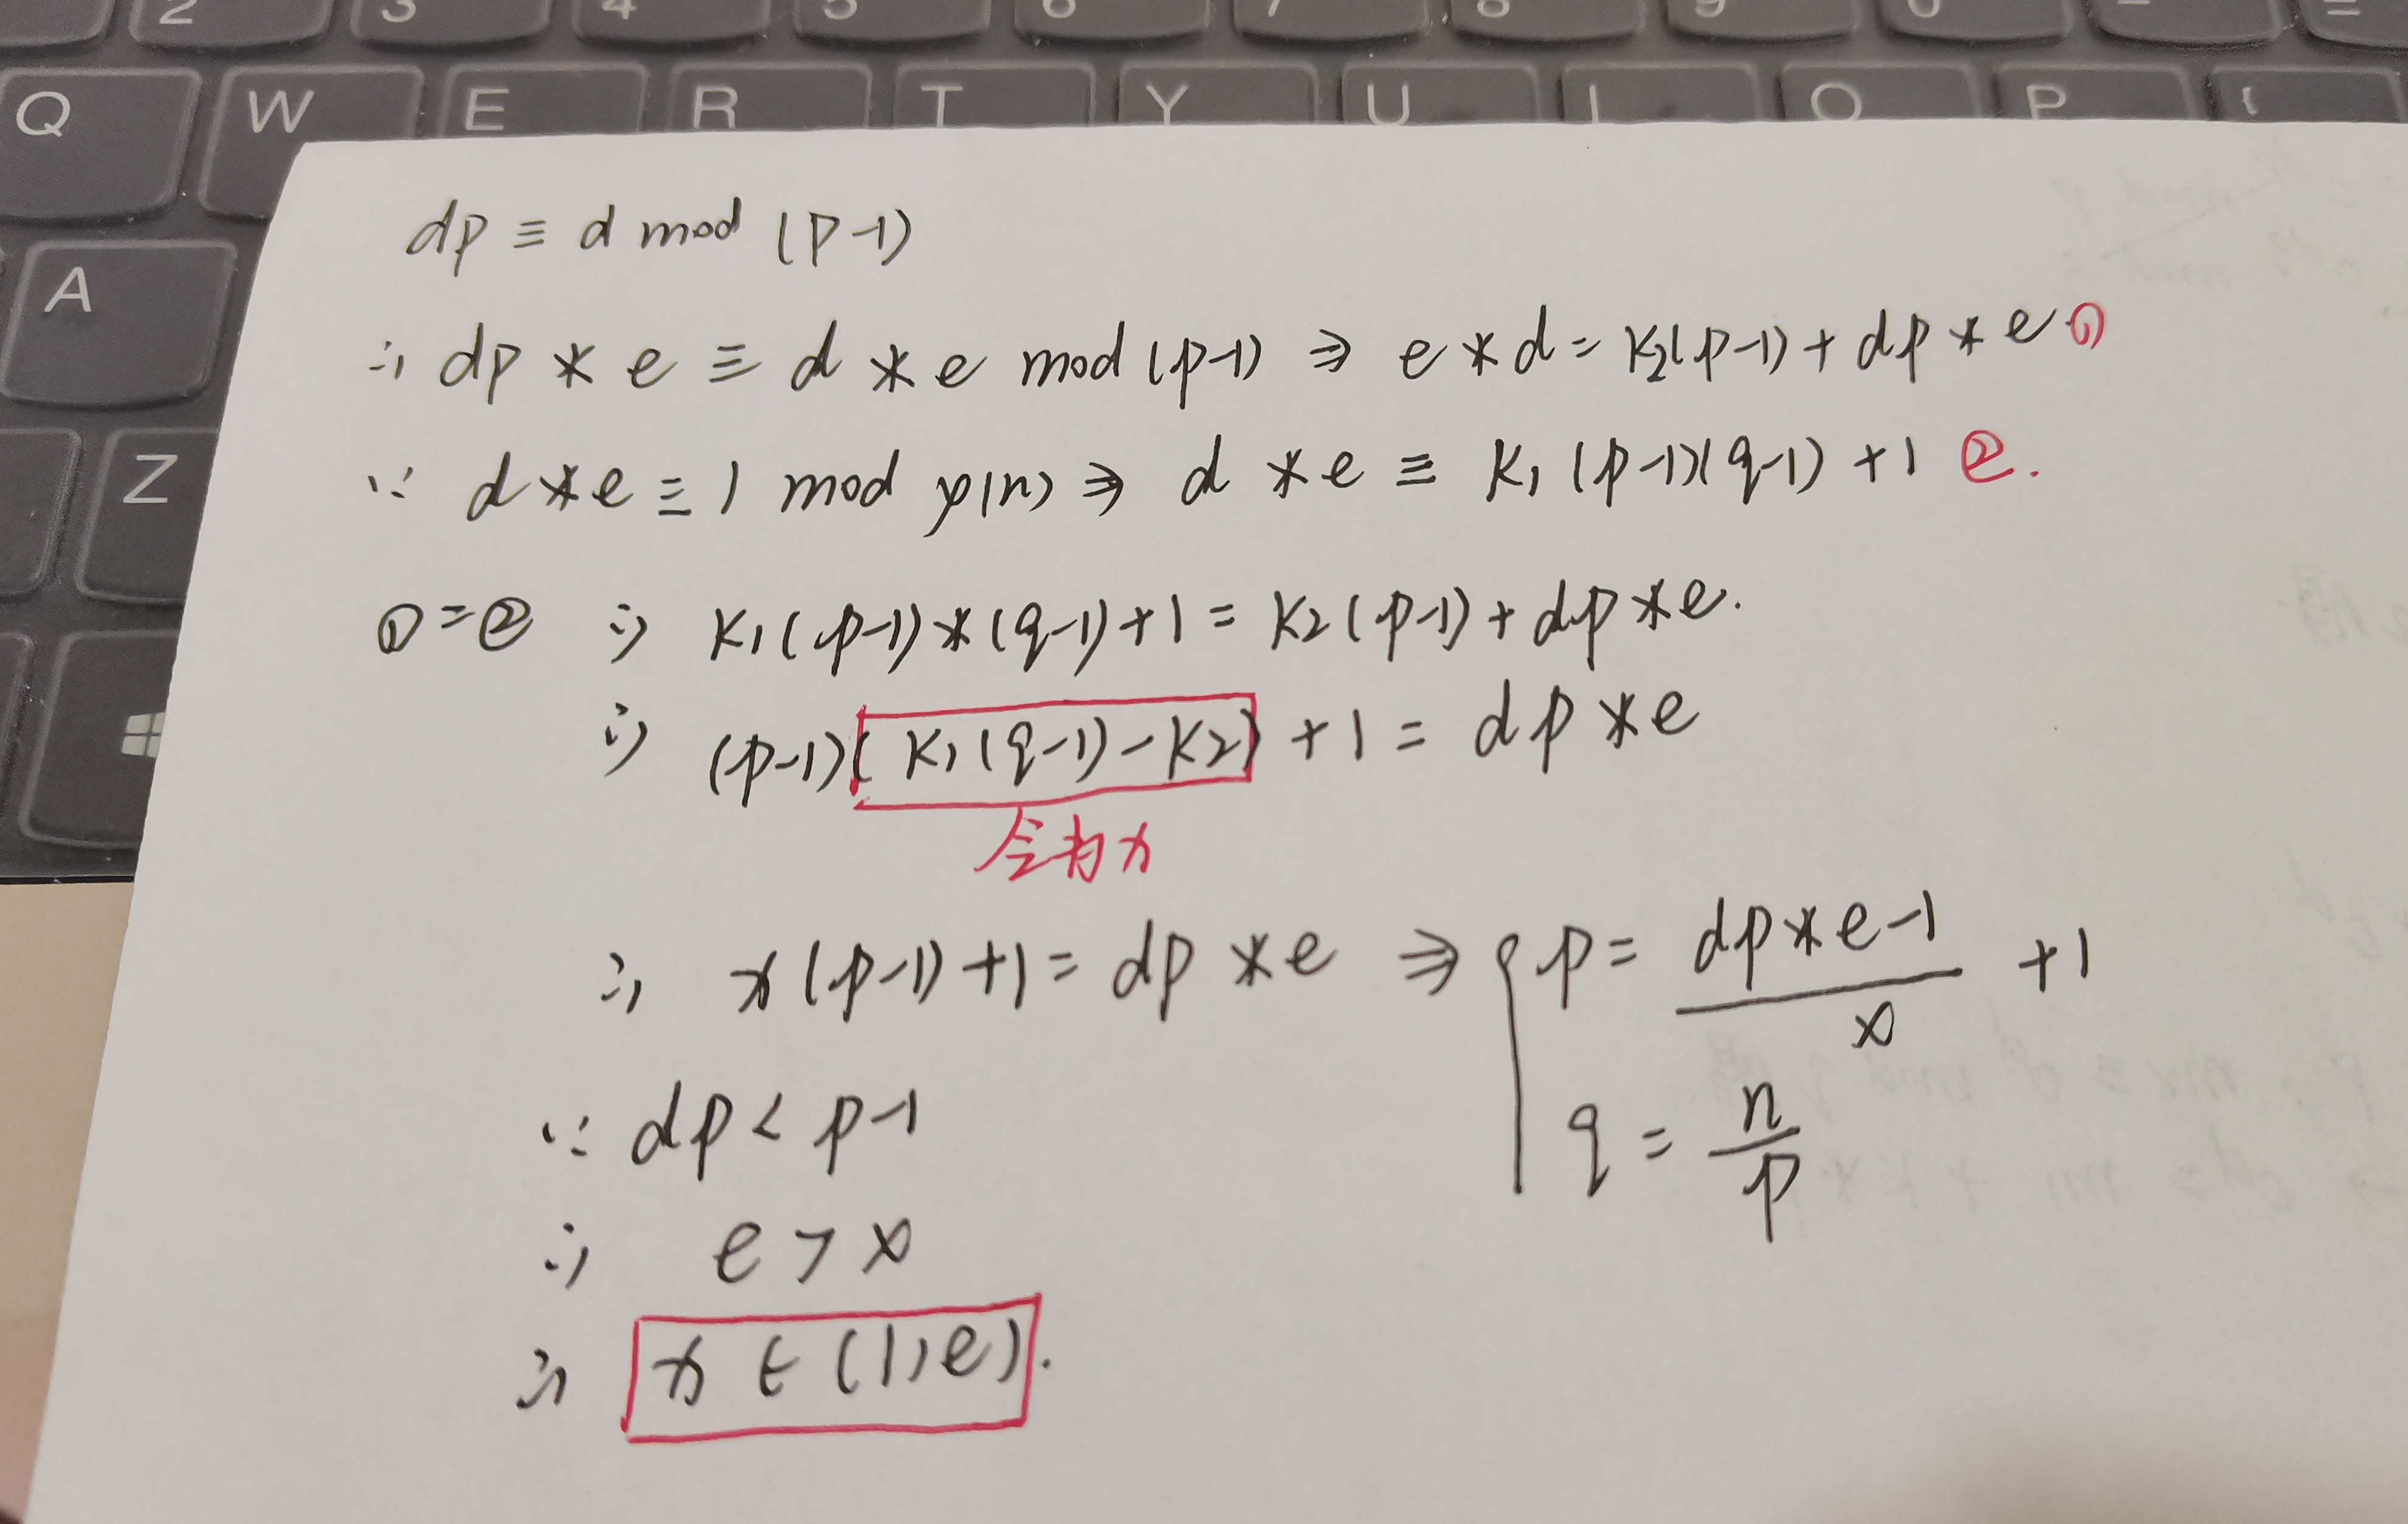 2 3 4 5 6 7 8 9 0
Q W E R T Y U I O P {
A
Z
dp ≡ d mod (p-1)
∴ dp * e ≡ d * e mod (p-1) ⇒ e * d = K2(p-1) + dp * e ①
∵ d * e ≡ 1 mod φ(n) ⇒ d * e ≡ K1 (p-1)(q-1) + 1 ②.
① = ② ∴ K1(p-1)*(q-1)+1 = K2(p-1)+dp*e.
∴ (p-1)(K1(q-1)-K2)+1 = dp*e
令为x
∴ x(p-1)+1 = dp * e ⇒ { p = (dp*e-1)/x + 1
q = n/p
∵ dp < p-1
∴ e > x
∴ x ∈ (1,e).